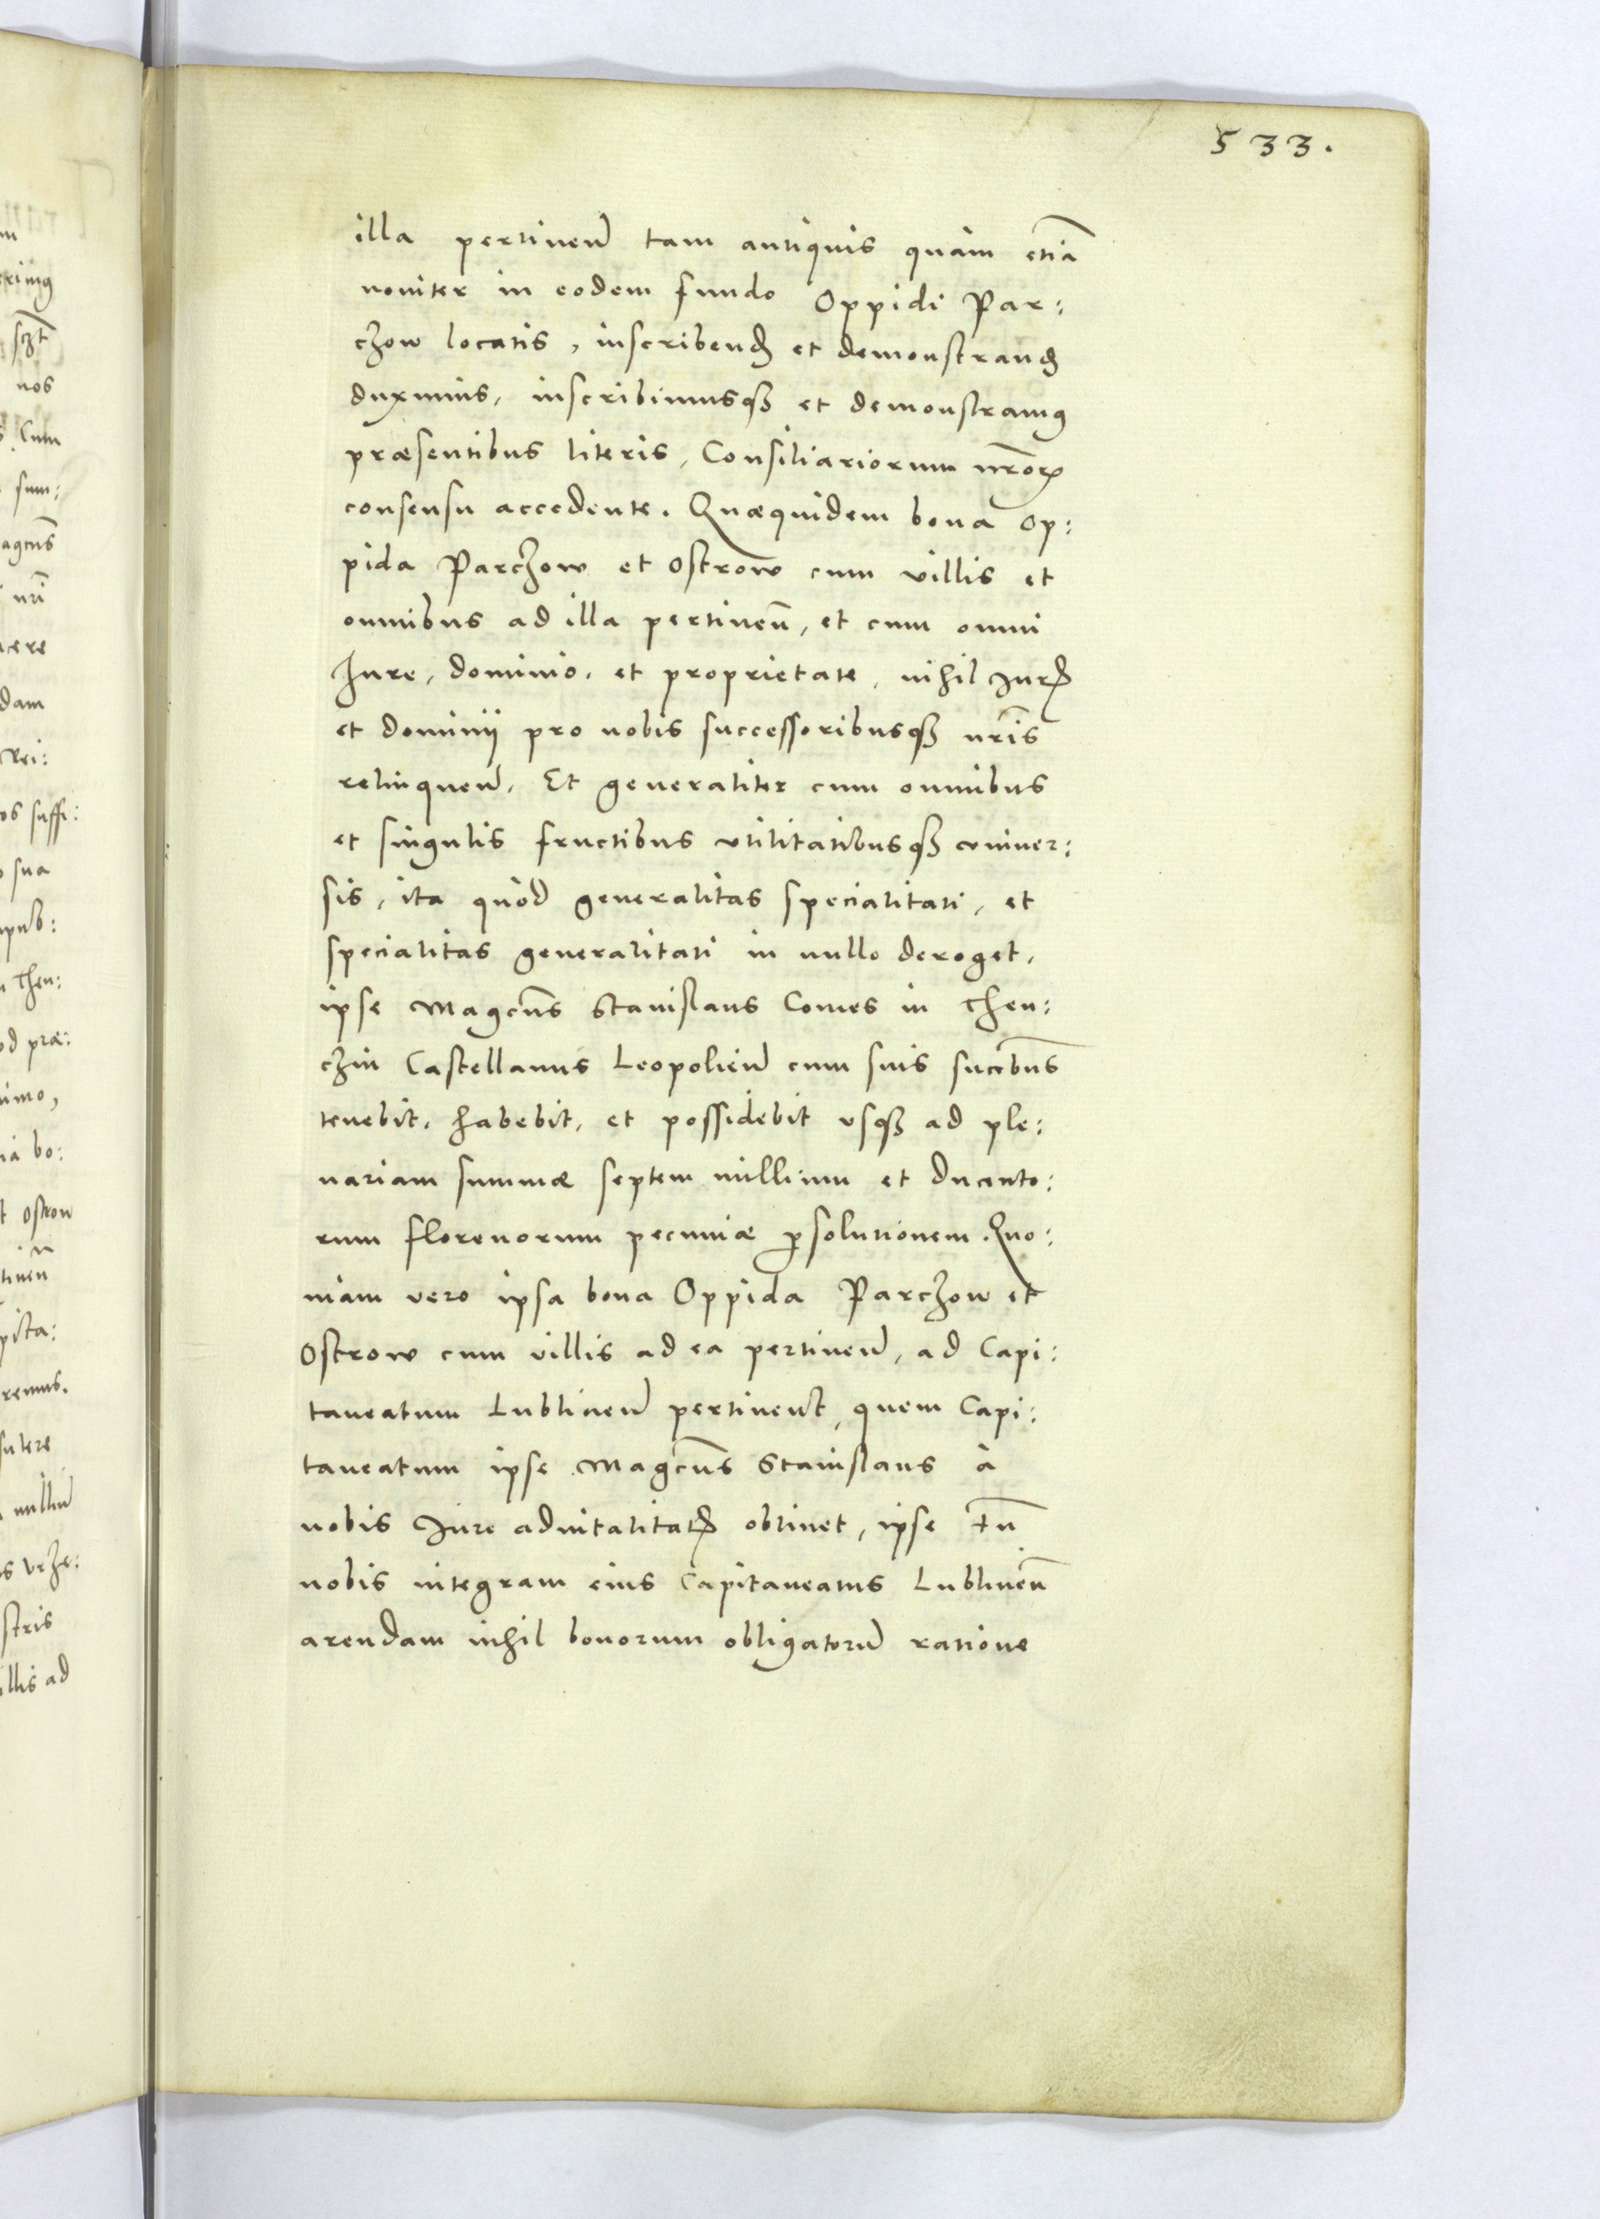 533.
illa pertinen̄ tam antiquis quàm etiā
noviter in eodem fundo Oppidi Par:
czow locatis, inscribenꝺ et demonstranꝺ
duximus, inscribimusqꝫ et demonstramꝰ
præsentibus literis, Consiliariorum nr̄oꝝ
consensu accedente. Quæquidem bona Op:
pida Parczow et Ostrow cum villis et
omnibus ad illa pertinen̄, et cum omni
Jure, dominio, et proprietate, nihil Jurꝭ
et dominij pro nobis successoribusqꝫ nr̄is
relinquen̄. Et generaliter cum omnibus
et singulis fructibus vtilitatibusqꝫ vniver:
sis, ita quòd generalitas specialitati, et
specialitas generalitati in nullo deroget,
ipse Magcūs Stanislaus Comes in Then:
czin Castellanus Leopolien̄ cum suis succ̄bus
tenebit, habebit, et possidebit vsqꝫ ad ple:
nariam summæ septem millium et Ducento:
rum florenorum pecuniæ ꝑsolutionem. Quo:
niam vero ipsa bona Oppida Parczow et
Ostrow cum villis ad ea pertinen̄, ad Capi:
taneatum Lublinen̄ pertinent, quem Capi:
taneatum ipse Magcūs Stanislaus à
nobis Jure advitalitatꝭ obtinet, ipse tn̄
nobis integram eius Capitaneatus Lublinen̄
arendam nihil bonorum obligatorū ratione